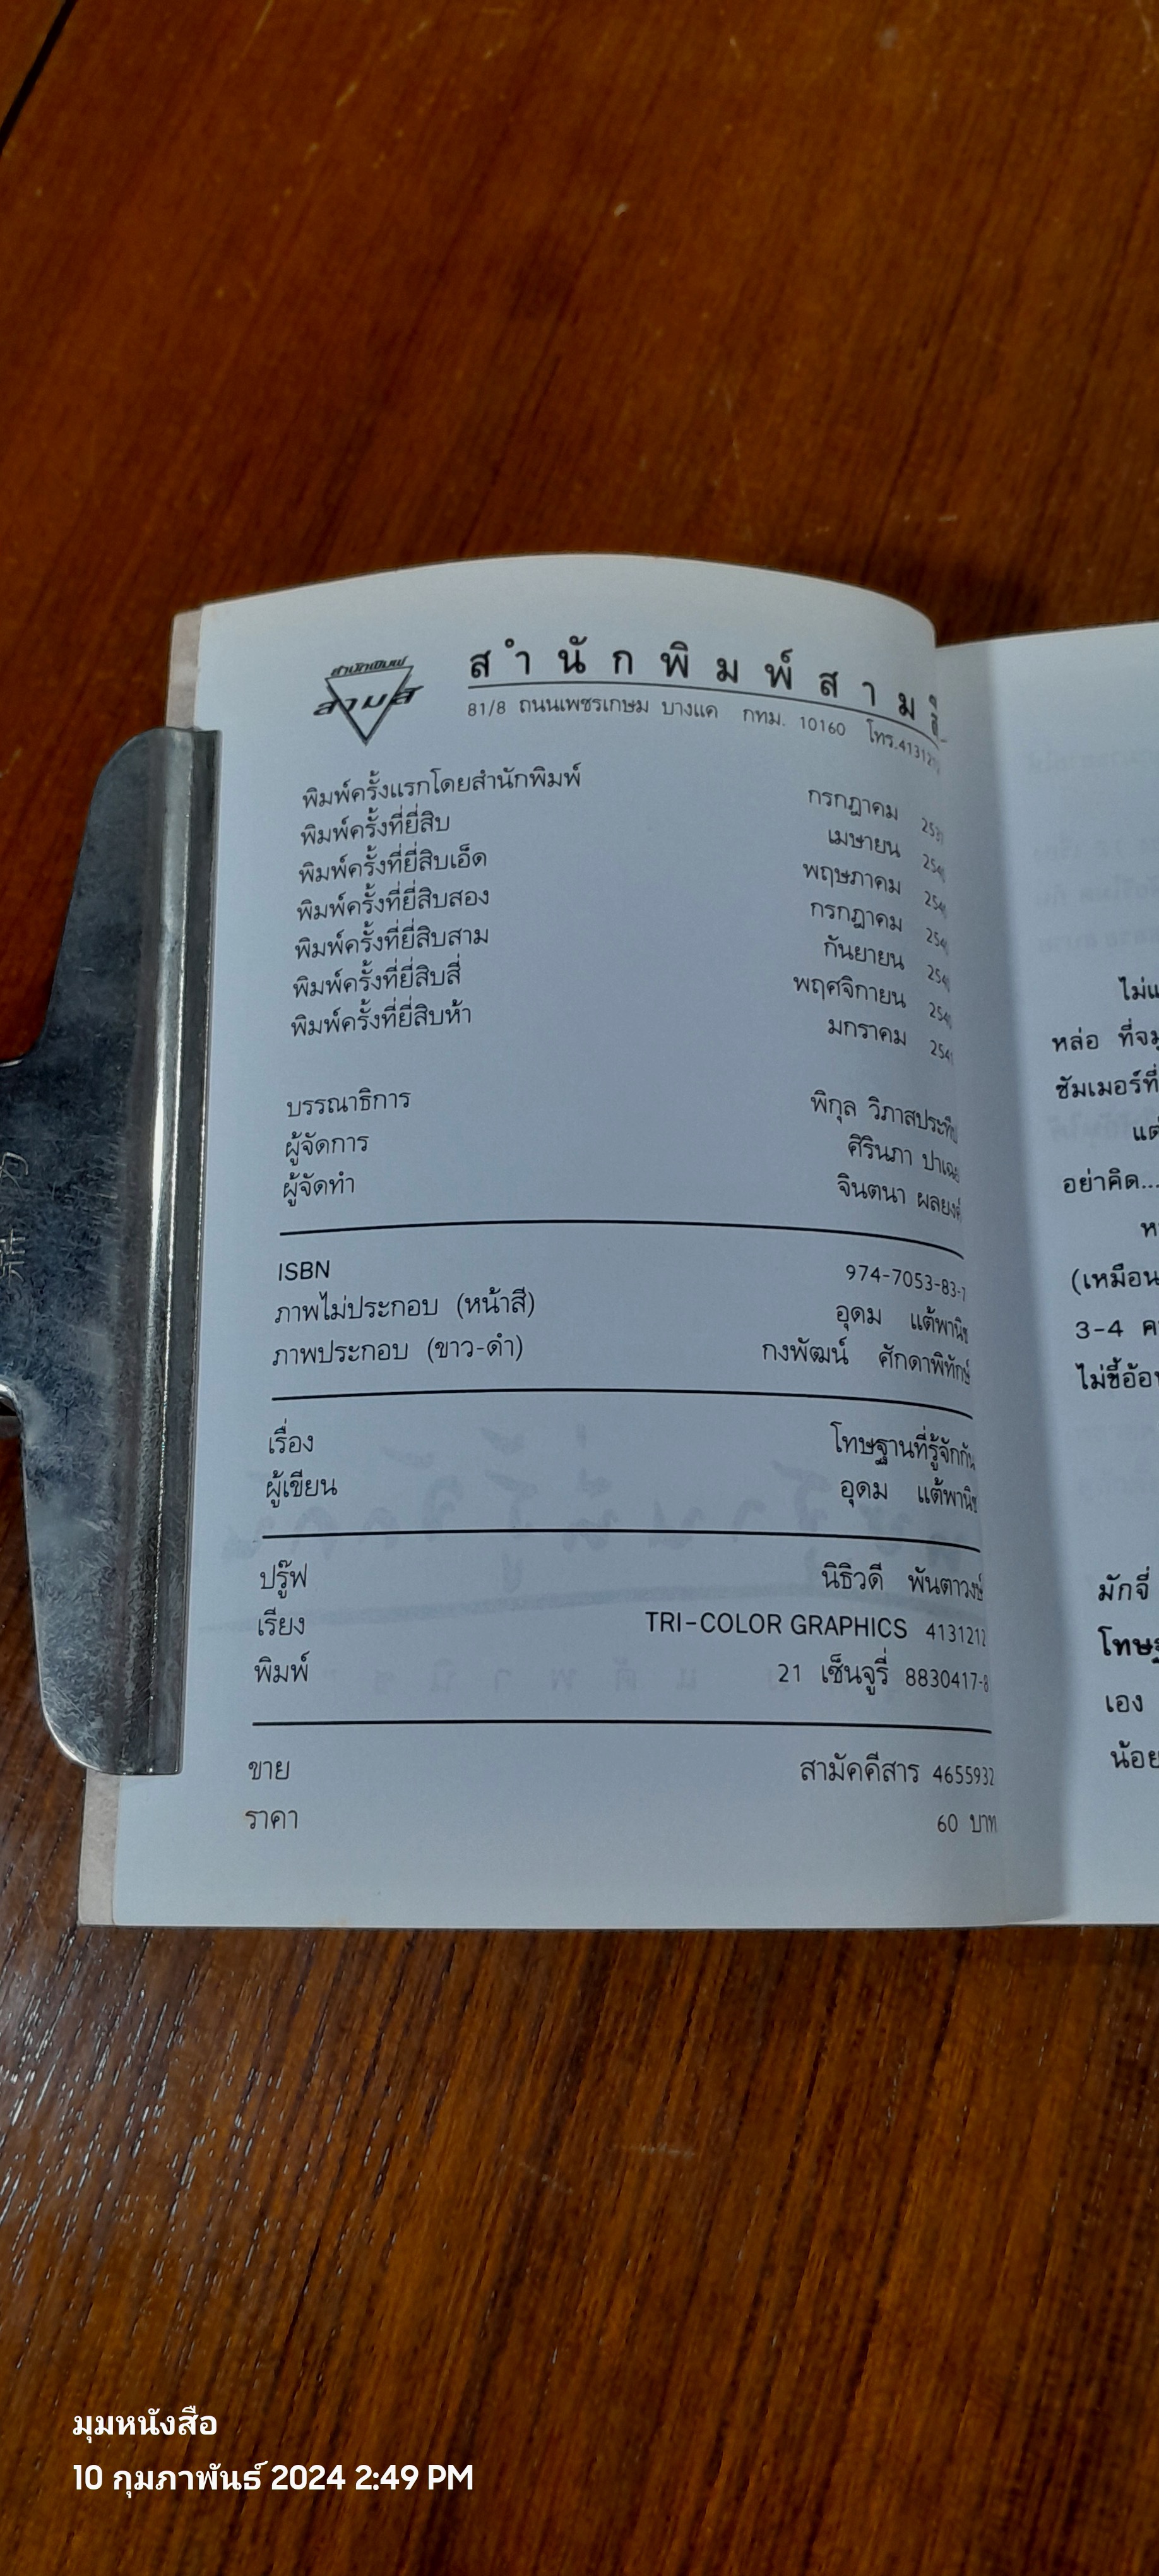 สำนักพิมพ์
สามสี
สำนักพิมพ์สามสี
81/8 ถนนเพชรเกษม บางแค กทม. 10160 โทร.
พิมพ์ครั้งแรกโดยสำนักพิมพ์ กรกฎาคม
พิมพ์ครั้งที่ยี่สิบ เมษายน
พิมพ์ครั้งที่ยี่สิบเอ็ด พฤษภาคม
พิมพ์ครั้งที่ยี่สิบสอง กรกฎาคม
พิมพ์ครั้งที่ยี่สิบสาม กันยายน
พิมพ์ครั้งที่ยี่สิบสี่ พฤศจิกายน
พิมพ์ครั้งที่ยี่สิบห้า มกราคม 2541
บรรณาธิการ พิกุล วิภาสประทีป
ผู้จัดการ ศิรินภา
ผู้จัดทำ จินตนา ผลยงค์
ISBN 974-7053-83-7
ภาพไม่ประกอบ (หน้าสี) อุดม แต้พานิช
ภาพประกอบ (ขาว-ดำ) กงพัฒน์ ศักดาพิทักษ์
เรื่อง โทษฐานที่รู้จักกัน
ผู้เขียน อุดม แต้พานิช
ปรู๊ฟ นิธิวดี พันตาวงษ์
เรียง TRI-COLOR GRAPHICS 4131212
พิมพ์ 21 เซ็นจูรี่ 8830417-8
ขาย สามัคคีสาร 4655932
ราคา 60 บาท
หล่อ ที่จมู
ซัมเมอร์ที่
แต่
อย่าคิด...
(เหมือน
3-4
ไม่ขี้อ้อน
มักจี่
โทษฐ
เอง
น้อย
มุมหนังสือ
10 กุมภาพันธ์ 2024 2:49 PM